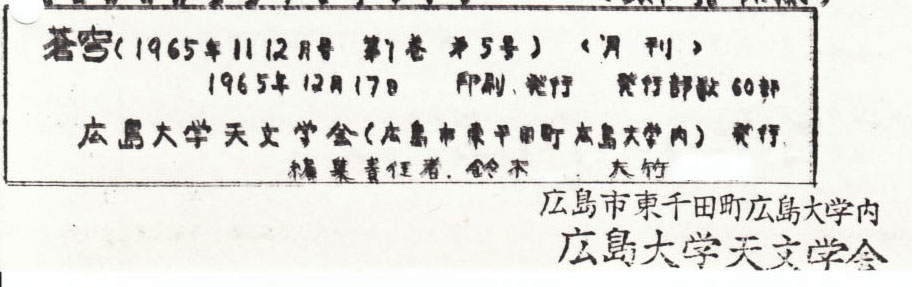 蒼穹(1965年11 12月号 第1巻 第5号) (月刊)
1965年12月17日 印刷、発行 発行部数60部
広島大学天文学会(広島市東千田町広島大学内) 発行
編集責任者.鈴木 大竹
広島市東千田町広島大学内
広島大学天文学会